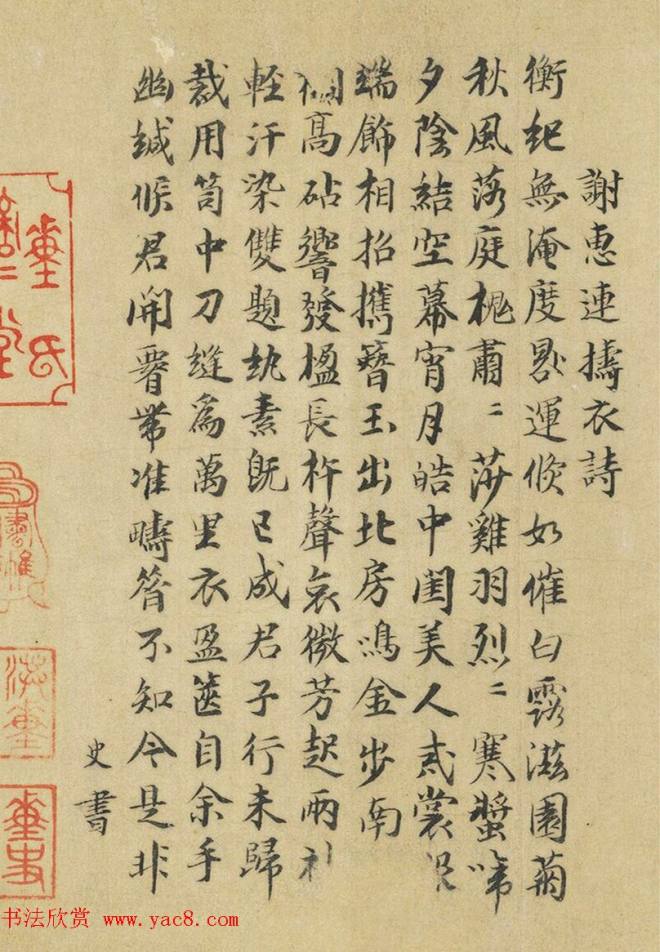 謝惠連擣衣詩
衡紀無淹度晷運倐如催白露滋園菊
秋風落庭槐肅〻莎雞羽烈〻寒螿啼
夕陰結空幕宵月皓中閨美人戒裳
端飾相招攜簪玉出北房鳴金步南
高砧響發楹長杵聲哀微芳起兩
輕汗染雙題紈素既已成君子行未歸
裁用笥中刀縫爲萬里衣盈篋自余手
幽緘候君開要帶准疇昔不知今是非
史書
书法欣赏 www.yac8.com